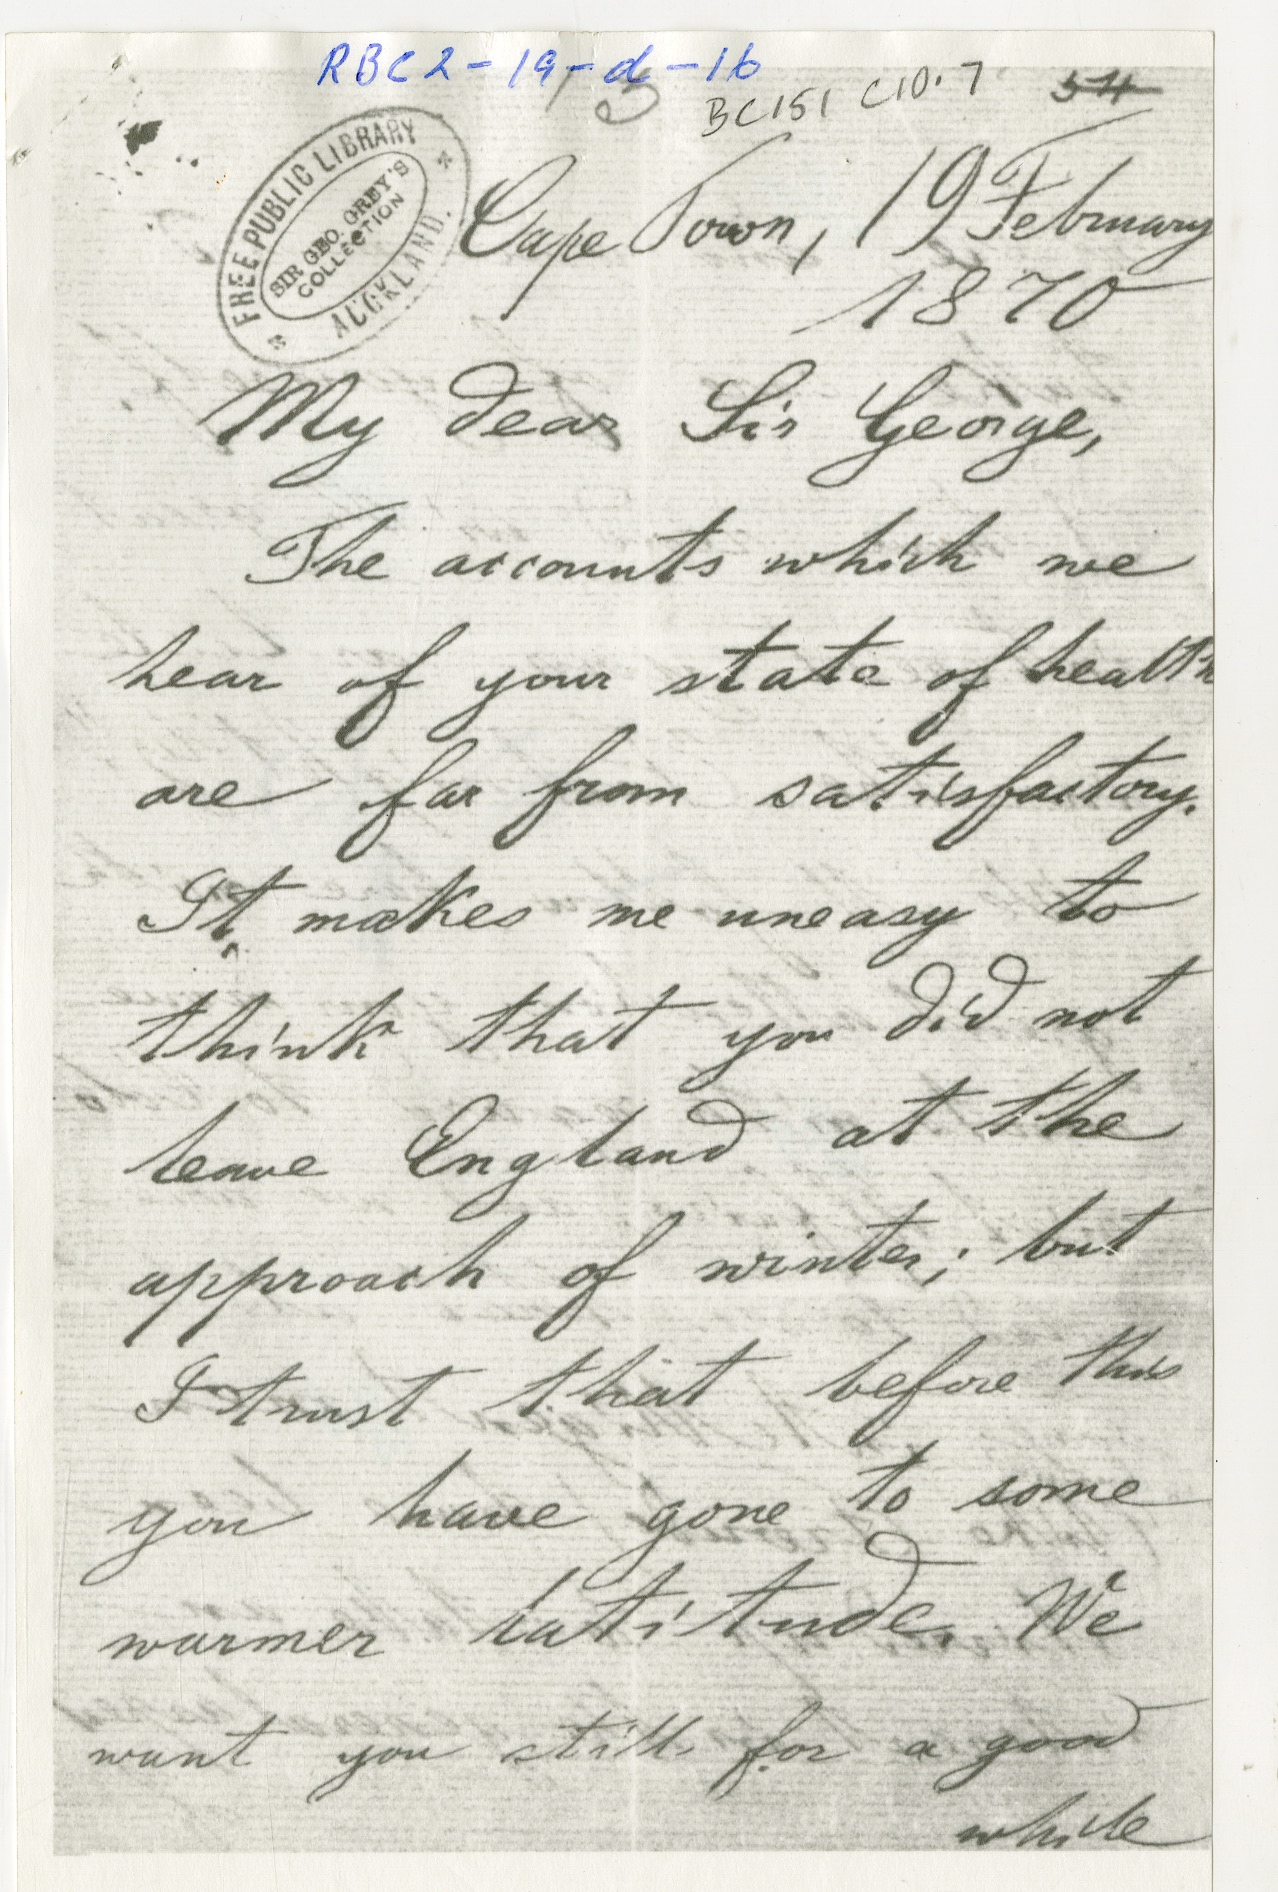 RBC2-19-d-16
3
BC151 C10.7
54
FREE PUBLIC LIBRARY
SIR GEO. GREY'S
COLLECTION
AUCKLAND.
Cape Town, 19 February
1870
My dear Sir George,
The accounts which we
hear of your state of health
are far from satisfactory.
It makes me uneasy to
think that you did not
leave England at the
approach of winter; but
I trust that before this
you have gone to some
warmer latitude. We
want you still for a good
while